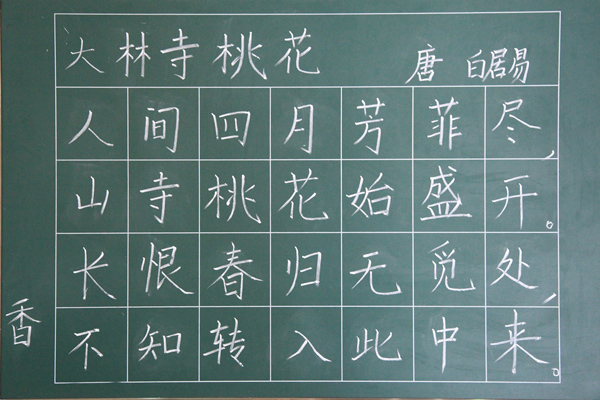 大林寺桃花 唐 白居易
人间四月芳菲尽，
山寺桃花始盛开。
长恨春归无觅处，
不知转入此中来。
香